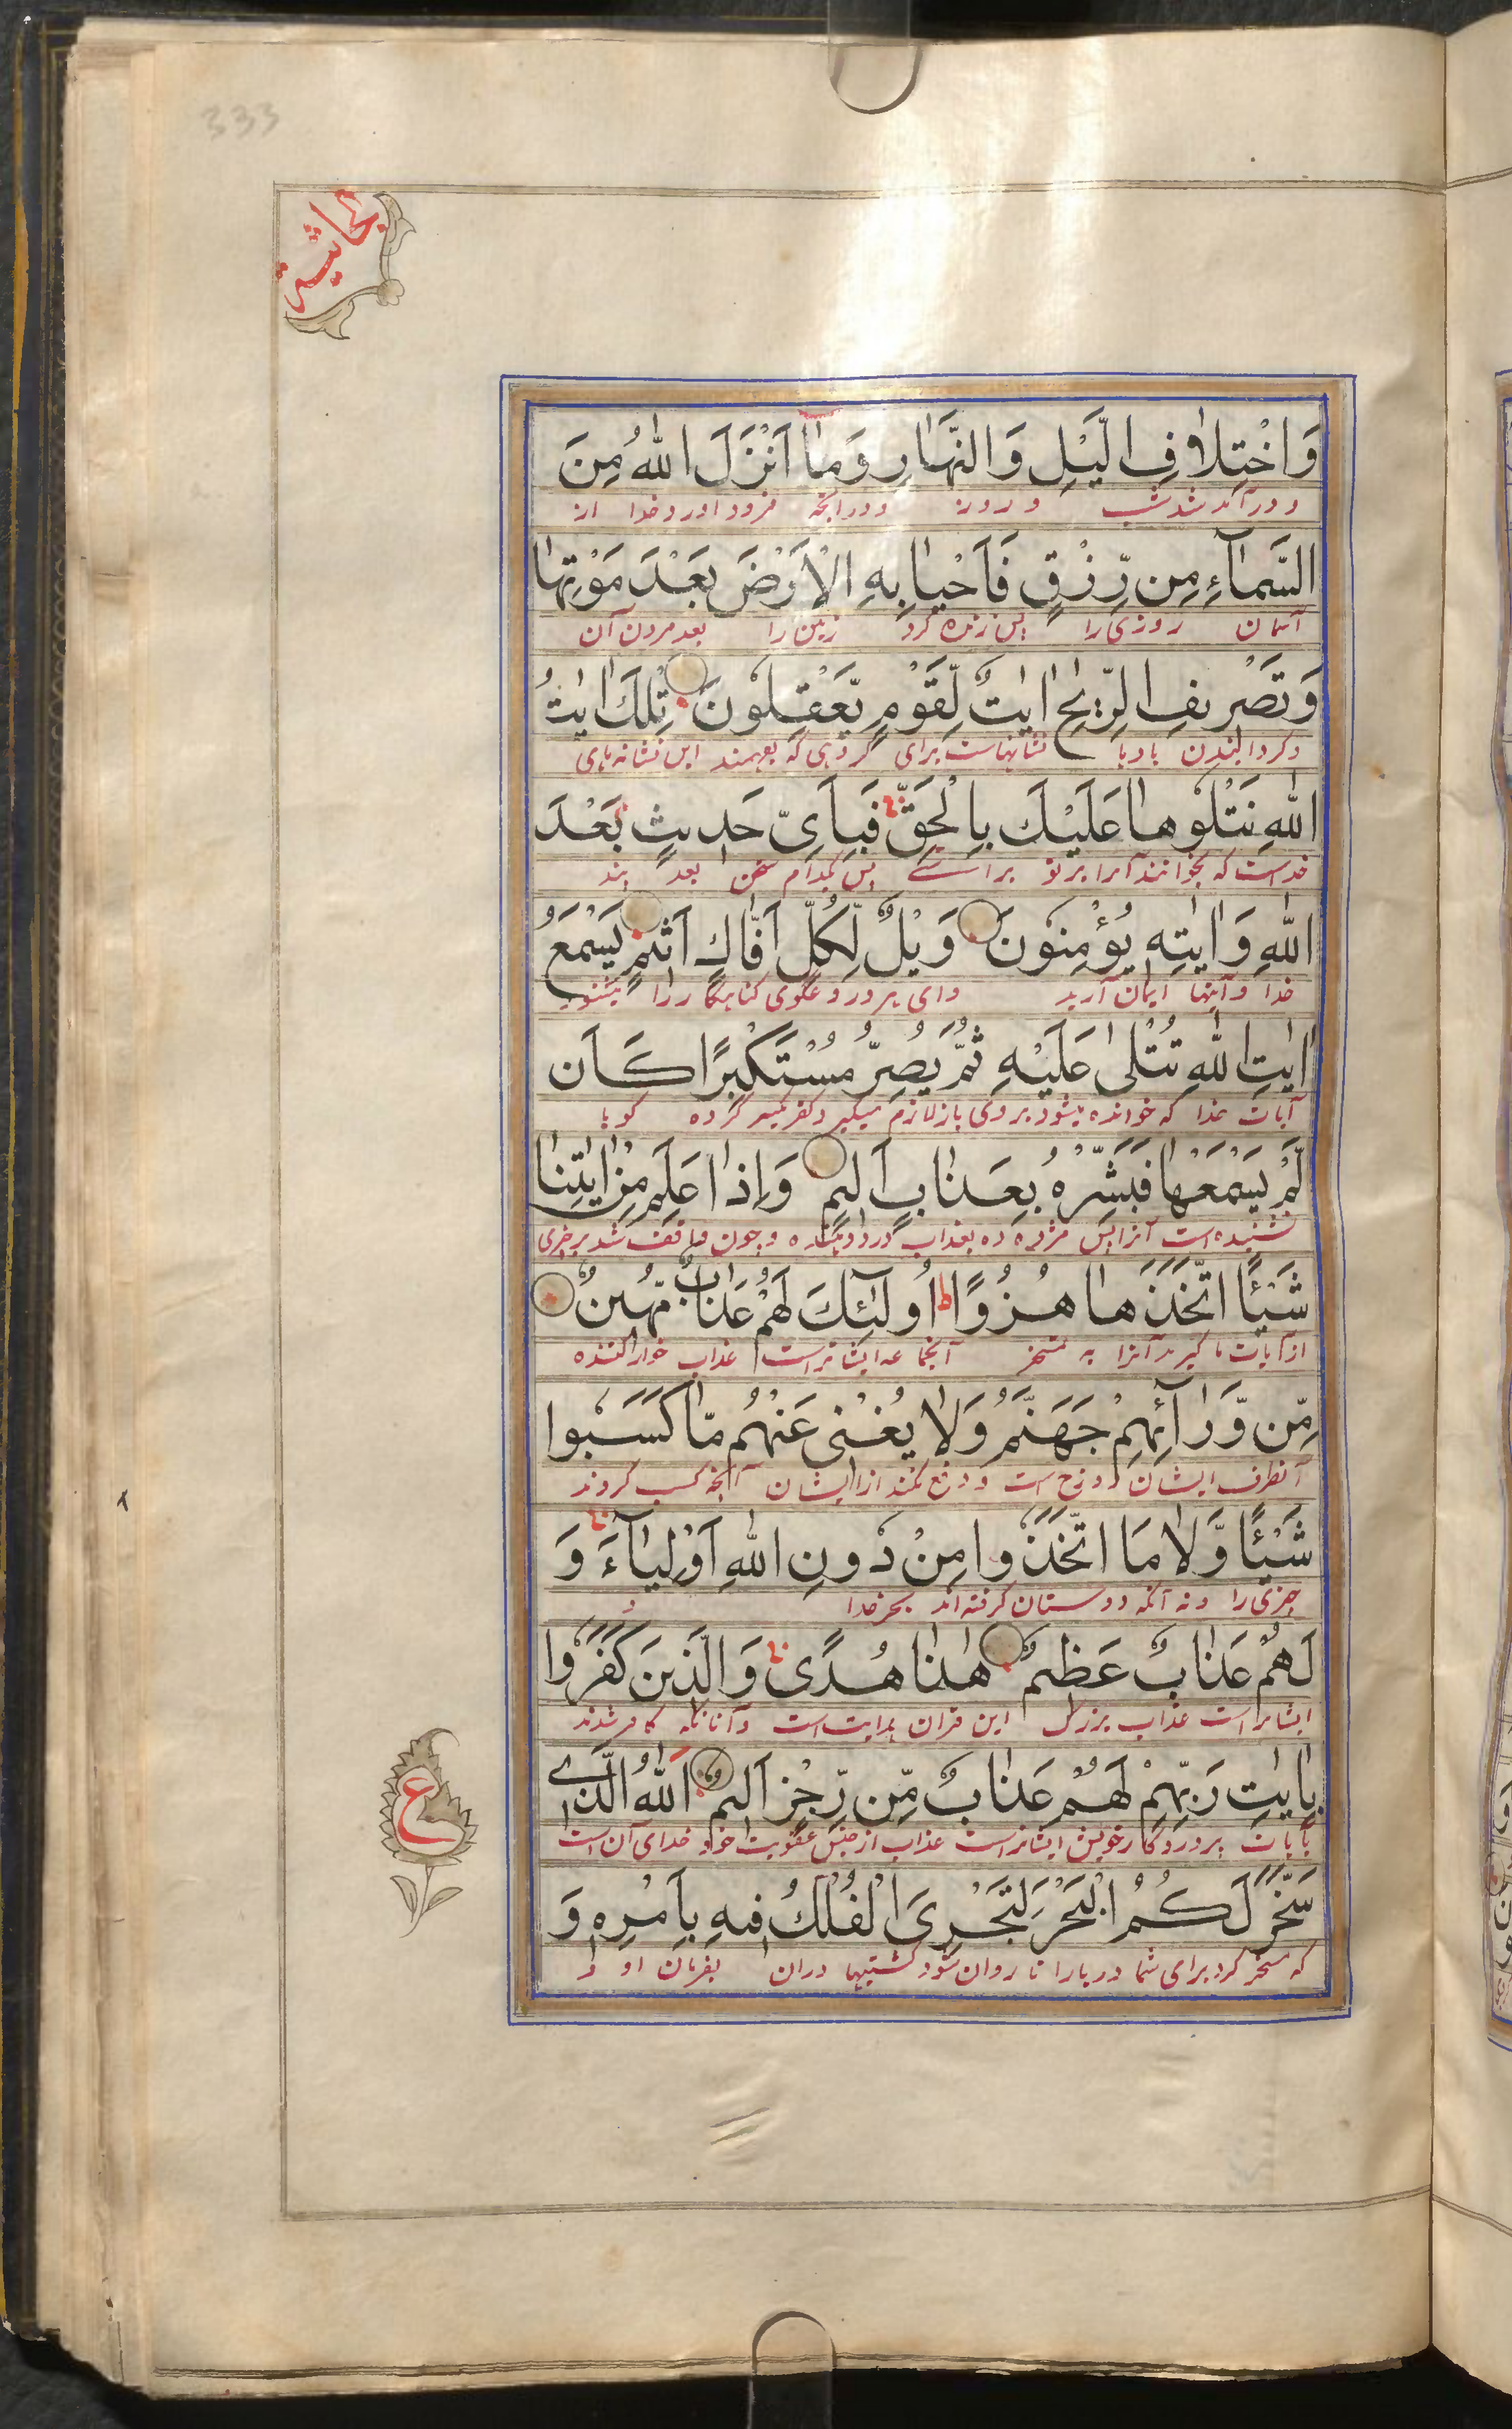 333
الجاثية
وَاخْتِلَافِ الَّيْلِ وَالنَّهَارِ وَمَا اَنْزَلَ اللّٰهُ مِنَ
و در آمد شد شب و روز و در انچه فرود اورد خدا از
السَّمَآءِ مِن رِّزْقٍ فَاَحْيَا بِهِ الْاَرْضَ بَعْدَ مَوْتِهَا
آسمان روزی را پس زنده کرد زمین را بعد مردن آن
وَتَصْرِيفِ الرِّيٰحِ اٰيٰتٌ لِّقَوْمٍ يَّعْقِلُونَ تِلْكَ اٰيٰتُ
و کردانیدن بادها نشانهاست برای گروهی که بفهمند این نشانه های
اللّٰهِ نَتْلُوهَا عَلَيْكَ بِالْحَقِّ فَبِاَىِّ حَدِيثٍ بَعْدَ
خداست که بخوانند آنرا بر تو براستی پس بکدام سخن بعد پند
اللّٰهِ وَاٰيٰتِهٖ يُؤْمِنُونَ وَيْلٌ لِّكُلِّ اَفَّاكٍ اَثِيمٍ يَسْمَعُ
خدا و آیتها ایمان آرید وای بر دروغگوی کناهکار را میشنود
اٰيٰتِ اللّٰهِ تُتْلٰى عَلَيْهِ ثُمَّ يُصِرُّ مُسْتَكْبِرًا كَاَن
آیات خدا که خوانده میشود بروی باز لازم میگیرد کفر تکبر کرده گویا
لَّمْ يَسْمَعْهَا فَبَشِّرْهُ بِعَذَابٍ اَلِيمٍ وَاِذَا عَلِمَ مِنْ اٰيٰتِنَا
نشنیده است آنرا پس مژده ده بعذاب درد دهنده و چون واقف شد بر چیزی
شَيْـًٔا اتَّخَذَهَا هُزُوًا اُولٰٓئِكَ لَهُمْ عَذَابٌ مُّهِينٌ
از آیات ما گیرد آنرا به تمسخر آنجماعه ایشانراست عذاب خوار کننده
مِّن وَّرَآئِهِمْ جَهَنَّمُ وَلَا يُغْنِى عَنْهُم مَّا كَسَبُوا
آنطرف ایشان دوزخ است و دفع نکند از ایشان آنچه کسب کردند
شَيْـًٔا وَّلَا مَا اتَّخَذُوا مِنْ دُونِ اللّٰهِ اَوْلِيَآءَ وَ
چیزی را و نه آنکه دوستان گرفته اند بجز خدا و
لَهُمْ عَذَابٌ عَظِيمٌ هٰذَا هُدًى وَالَّذِينَ كَفَرُوا
ایشانراست عذاب بزرک این قران هدایت است و آنانکه کافر شدند
بِاٰيٰتِ رَبِّهِمْ لَهُمْ عَذَابٌ مِّن رِّجْزٍ اَلِيمٌ اَللّٰهُ الَّذِے
بآیات پروردگار خویش ایشانراست عذاب از جنس عقوبت خدای آن است
ع
سَخَّرَ لَكُمُ الْبَحْرَ لِتَجْرِىَ الْفُلْكُ فِيهِ بِاَمْرِهٖ وَ
که مسخر کرد برای شما دریا را تا روان شود کشتیها دران بفرمان او و